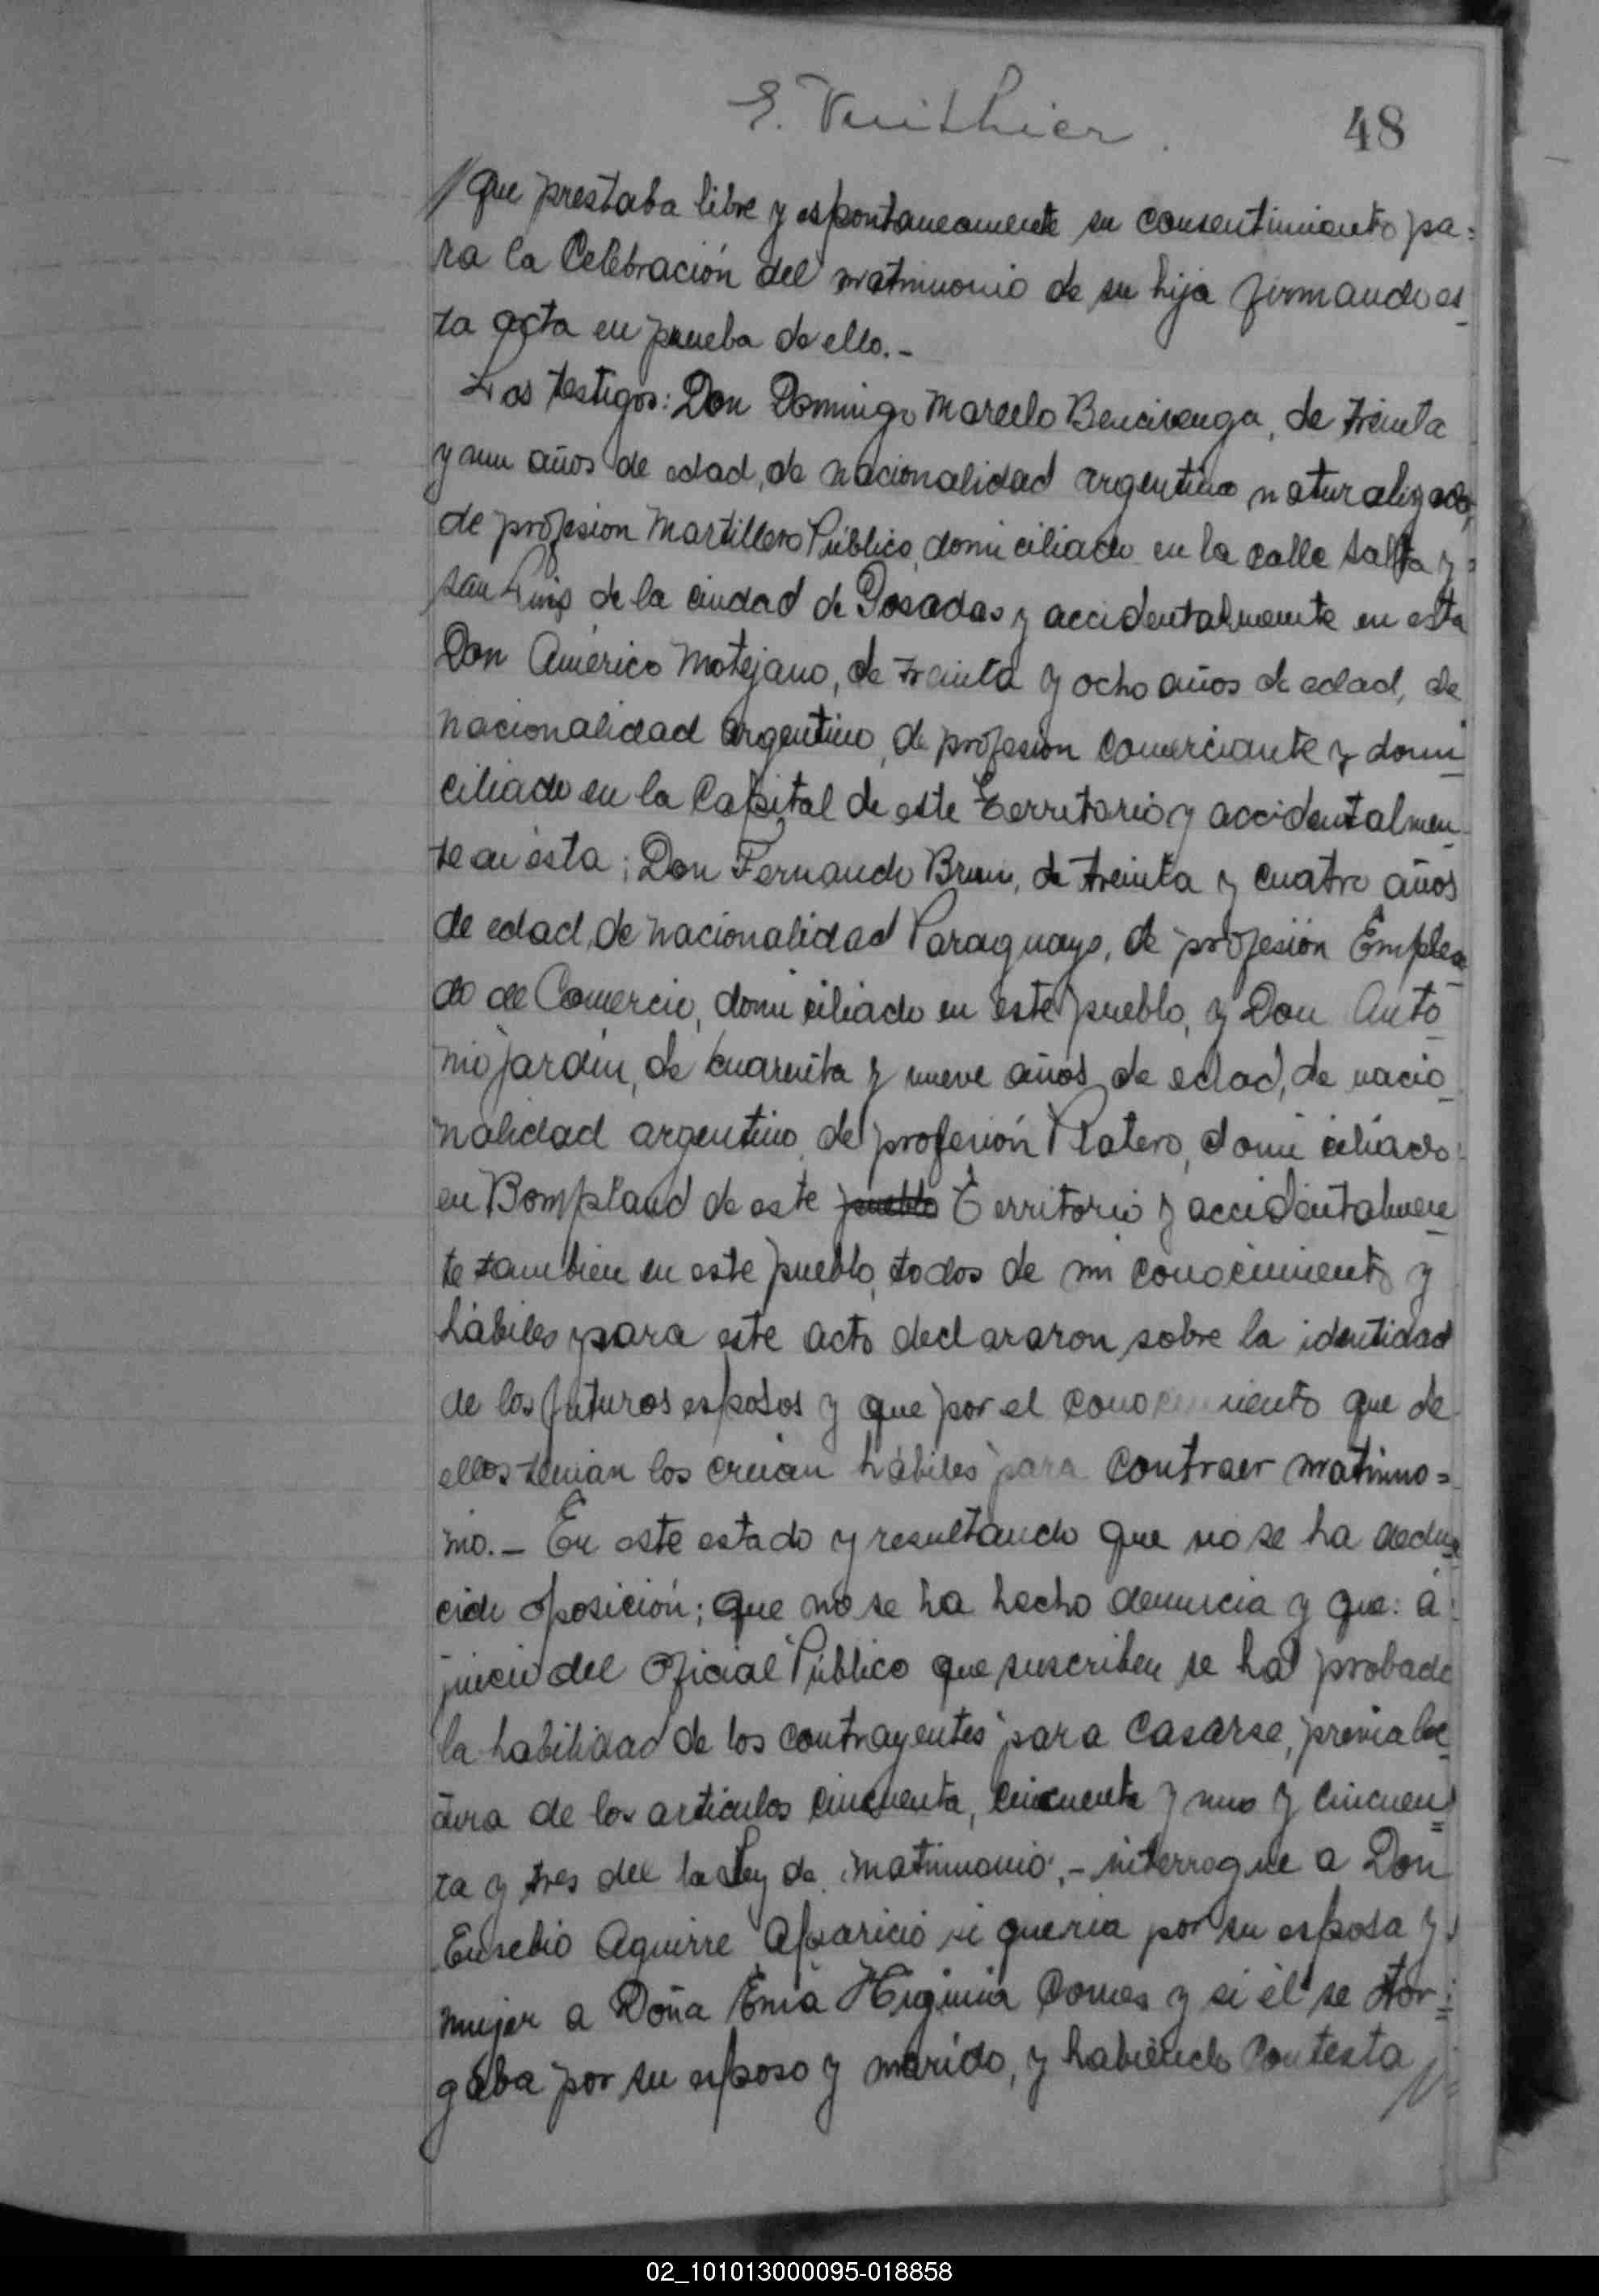 E. Vuithier
48
// que prestaba libre y espontaneamente su consentimiento pa=
ra la Celebración del matrimonio de su hija firmando es
ta acta en prueba de ello.-
Los testigos: Don Domingo Marcelo Bencivenga, de treinta
y un años de edad, de nacionalidad argentino naturalizado,
de profesion Martillero Público, domiciliado en la calle Salta y
San Luis de la ciudad de Posadas y accidentalmente en esta
Don Américo Motejano, de treinta y ocho años de edad, de
nacionalidad argentino, de profesion comerciante y domi
ciliado en la Capital de este Territorio y accidentalmen
te en ésta; Don Fernando Brun, de treinta y cuatro años
de edad, de nacionalidad Paraguayo, de profesión Emplea
do de Comercio, domiciliado en este pueblo, y Don Anto
nio jardin, de cuarenta y nueve años de edad, de nacio
nalidad argentino, de profesión Platero, domiciliado
en Bompland de este pueblo Territorio y accidentalmen
te tambien en este pueblo, todos de mi conocimiento y
hábiles para este acto declararon sobre la identidad
de los futuros esposos y que por el conocimiento que de
ellos tenian los creian hábiles para contraer matrimo=
nio.- En este estado y resultando que no se ha dedu
cido oposición; que no se ha hecho denuncia y que: á
juicio del Oficial Público que suscribe se ha probado
la habilidad de los contrayentes para casarse, previa lec
tura de los articulos cincuenta, cincuenta y uno y cincuen
ta y tres del la Ley de matrimonio.- interrogue a Don
Eusebio Aguirre Aparicio si queria por su esposa y
mujer a Doña Ema Higinia Gomes y si él se otor=
gaba por su esposo y marido, y habiendo contesta //
02_101013000095-018858